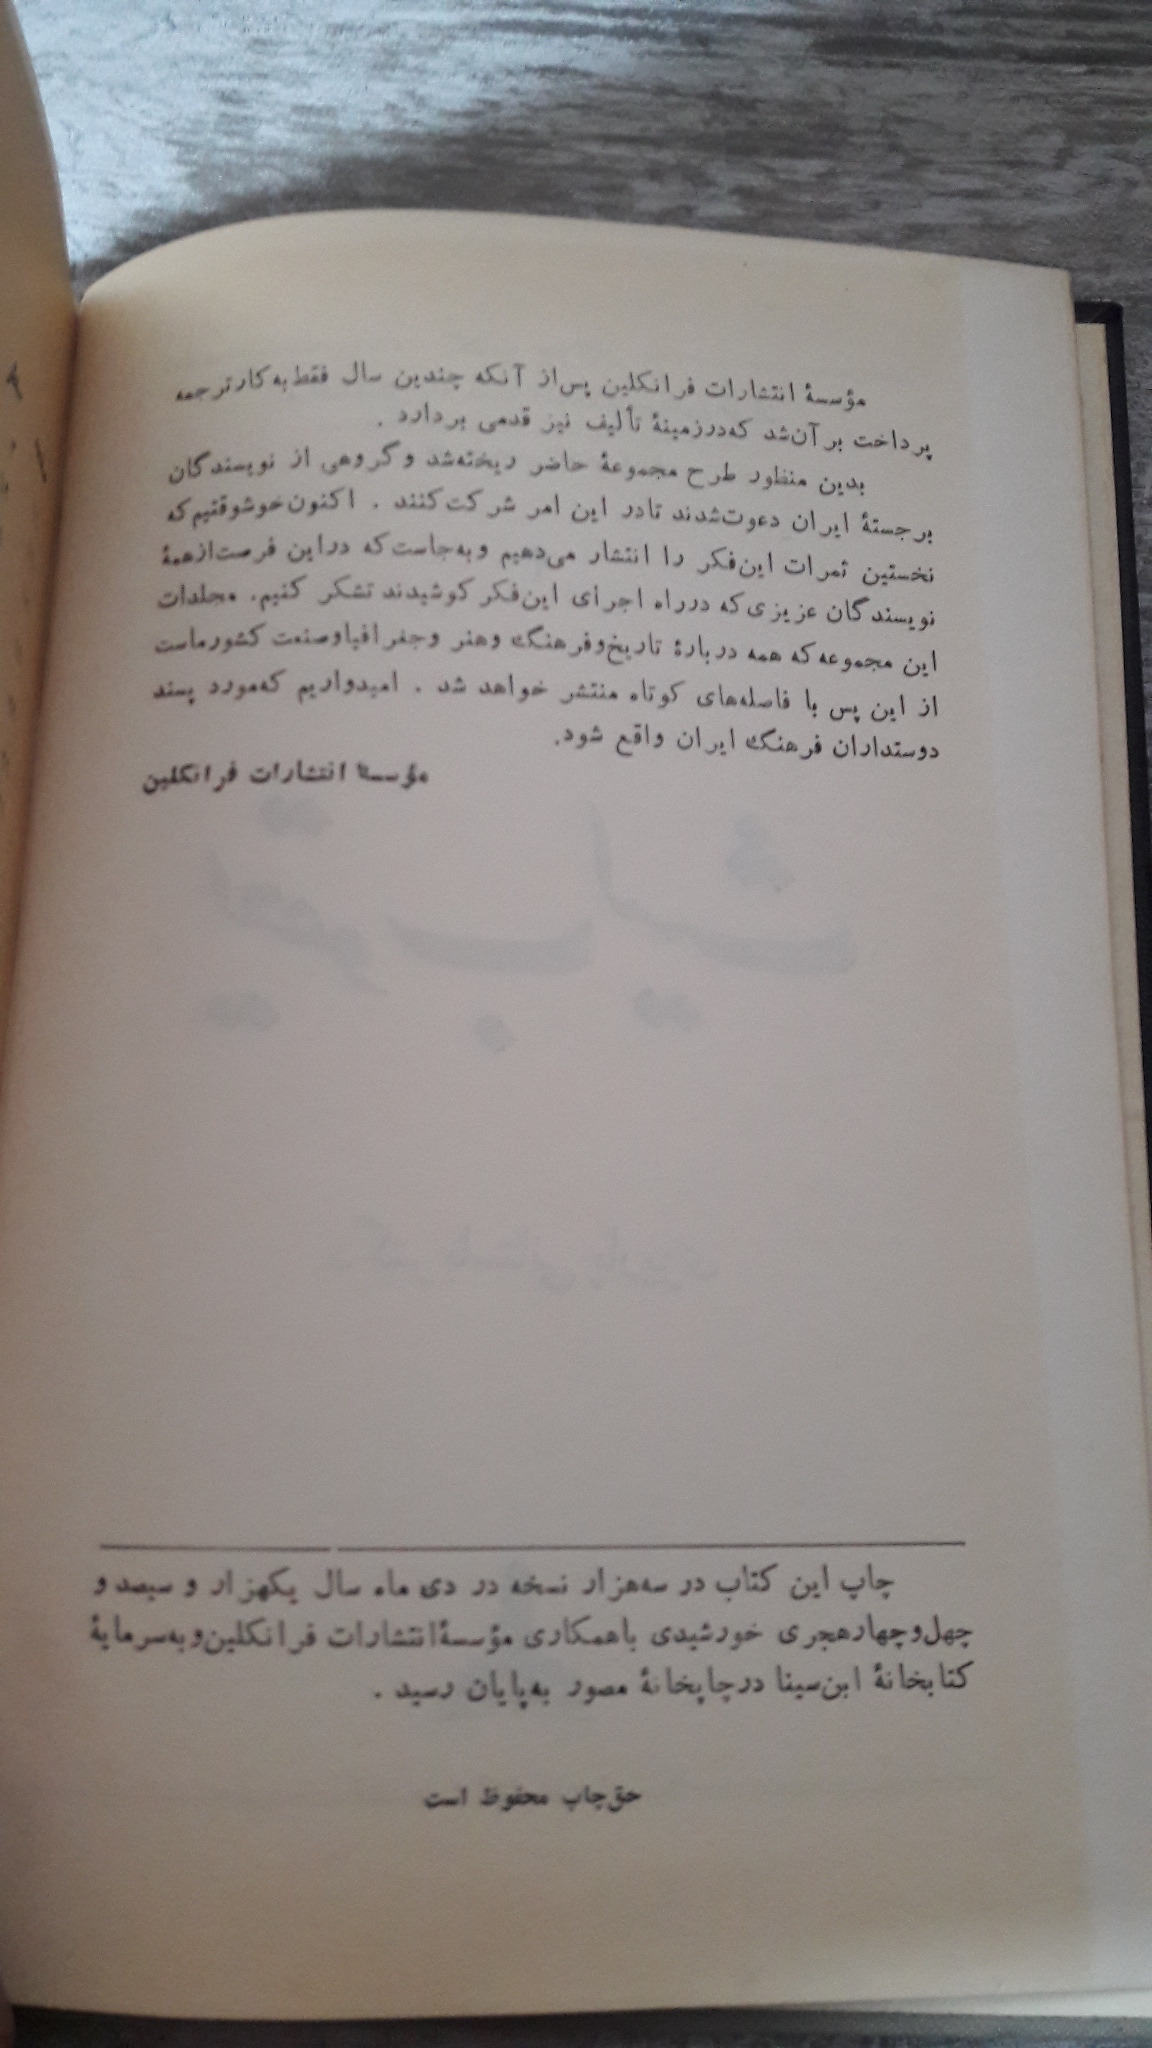 مؤسسهٔ انتشارات فرانکلین پس‌از آنکه چندین سال فقط به کار ترجمه
پرداخت بر آن‌شد که درزمینهٔ تألیف نیز قدمی بردارد .
بدین منظور طرح مجموعهٔ حاضر ریخته‌شد و گروهی از نویسندگان
برجستهٔ ایران دعوت‌شدند تادر این امر شرکت‌کنند . اکنون‌خوشوقتیم‌که
نخستین ثمرات این‌فکر را انتشار می‌دهیم و به‌جاست‌که دراین فرصت‌ازهمهٔ
نویسندگان عزیزی که درراه اجرای این‌فکر کوشیدند تشکر کنیم. مجلدات
این مجموعه‌که همه دربارهٔ تاریخ‌وفرهنگ وهنر وجغرافیاوصنعت کشورماست
از این پس با فاصله‌های کوتاه منتشر خواهد شد . امیدواریم که‌مورد پسند
دوستداران فرهنگ ایران واقع شود.
مؤسسهٔ انتشارات فرانکلین
چاپ این کتاب در سه‌هزار نسخه در دی ماه سال یکهزار و سیصد و
چهل‌وچهارهجری خورشیدی باهمکاری مؤسسهٔ‌انتشارات فرانکلین‌وبه‌سرمایهٔ
کتابخانهٔ ابن‌سینا درچاپخانهٔ مصور به‌پایان رسید .
حق‌چاپ محفوظ است